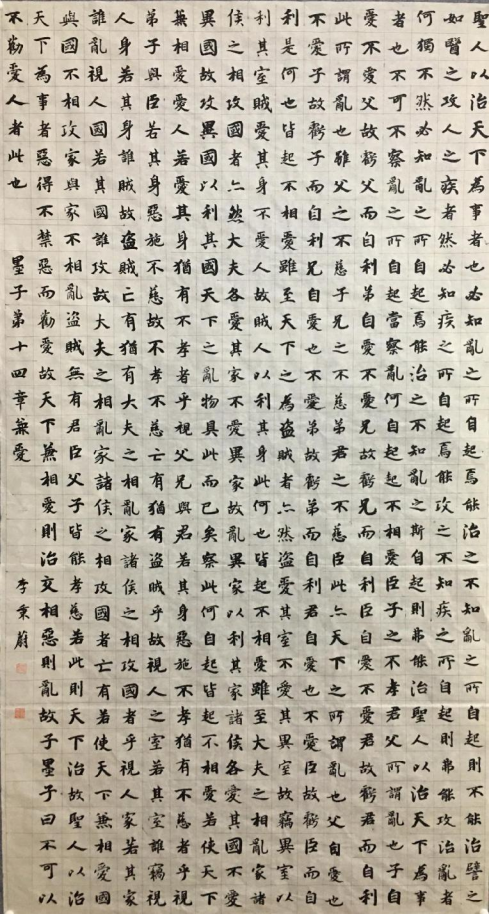 聖人以治天下為事者也必知亂之所自起焉能治之不知亂之所自起則不能治譬之
如醫之攻人之疾者然必知疾之所自起焉能攻之不知疾之所自起則弗能攻治亂者
何獨不然必知亂之所自起焉能治之不知亂之斯自起則弗能治聖人以治天下為事
者也不可不察亂之所自起當察亂何自起起不相愛臣子之不孝君父所謂亂也子自
愛不愛父故虧父而自利弟自愛不愛兄故虧兄而自利臣自愛不愛君故虧君而自利
此所謂亂也雖父之不慈子兄之不慈弟君之不慈臣此亦天下之所謂亂也父自愛也
不愛子故虧子而自利兄自愛也不愛弟故虧弟而自利君自愛也不愛臣故虧臣而自
利是何也皆起不相愛雖至天下之為盜賊者亦然盜愛其室不愛其異室故竊異室以
利其室賊愛其身不愛人故賊人以利其身此何也皆起不相愛雖至大夫之相亂家諸
侯之相攻國者亦然大夫各愛其家不愛異家故亂異家以利其家諸侯各愛其國不愛
異國故攻異國以利其國天下之亂物具此而已矣察此何自起皆起不相愛若使天下
兼相愛愛人若愛其身猶有不孝者乎視父兄與君若其身惡施不孝猶有不慈者乎視
弟子與臣若其身惡施不慈故不孝不慈亡有猶有盜賊乎故視人之室若其室誰竊視
人身若其身誰賊故盜賊亡有猶有大夫之相亂家諸侯之相攻國者乎視人家若其家
誰亂視人國若其國誰攻故大夫之相亂家諸侯之相攻國者亡有若使天下兼相愛國
與國不相攻家與家不相亂盜賊無有君臣父子皆能孝慈若此則天下治故聖人以治
天下為事者惡得不禁惡而勸愛故天下兼相愛則治交相惡則亂故子墨子曰不可以
不勸愛人者此也 墨子第十四章兼愛 李秉蔚